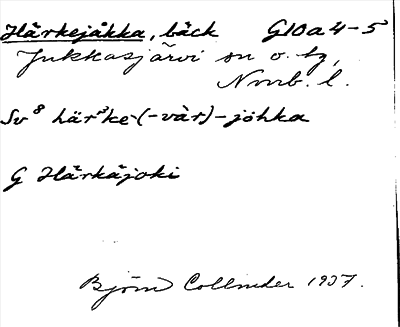 Härkejåkka, bäck G10a4-5
Jukkasjärvi sn o. tg,
Nmb. l.
Sv⁸ här³ke-(-vàr)-jöhka
G Härkäjoki
Björn Collinder 1937.